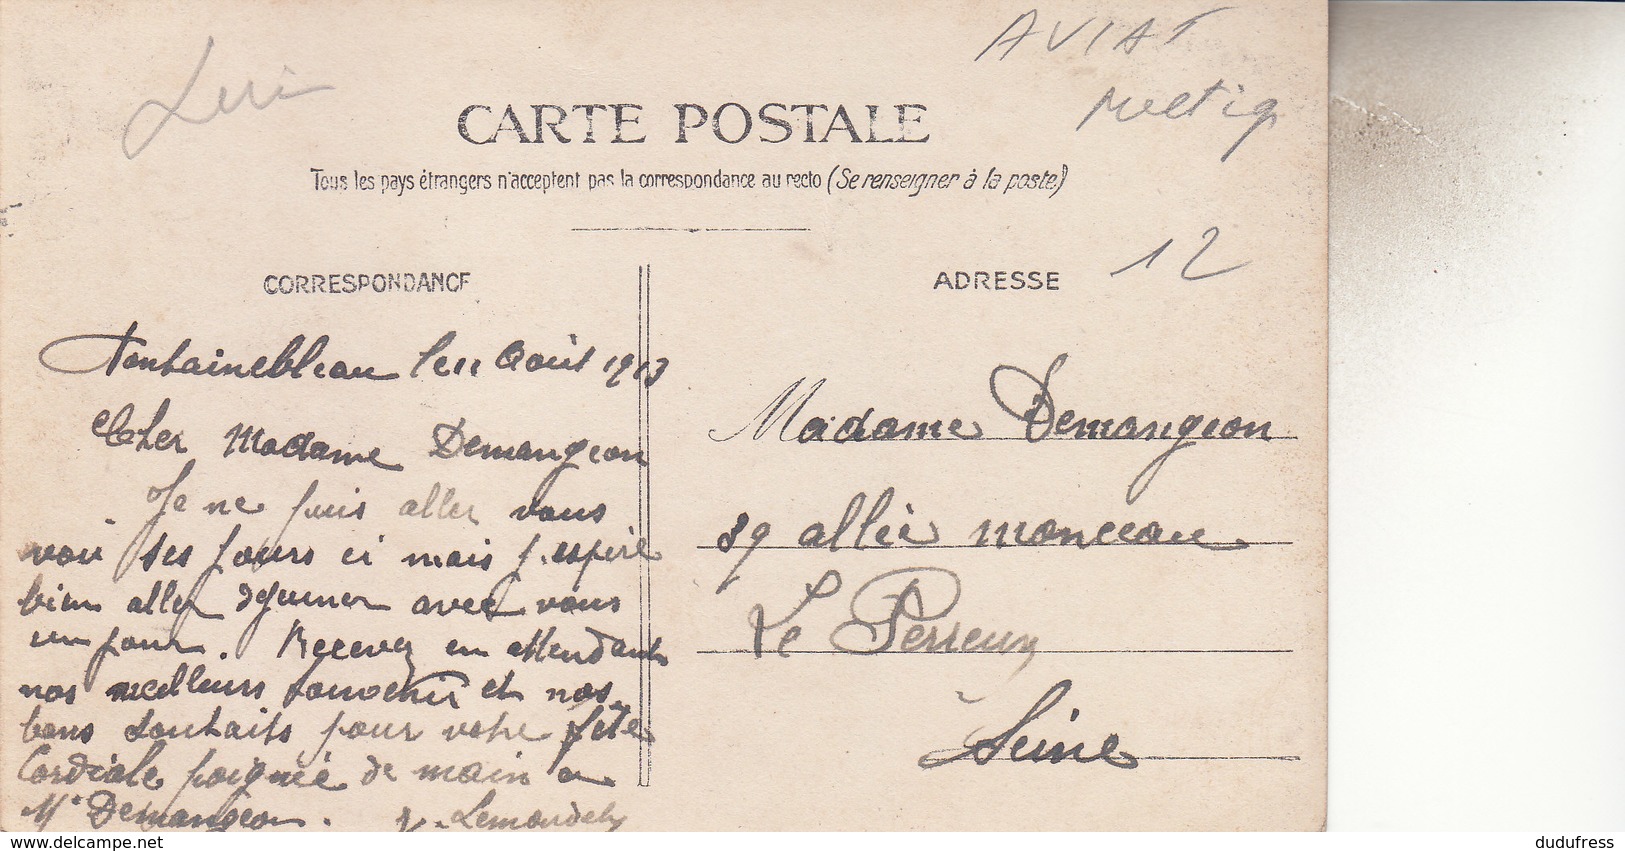 AVIAT
CARTE POSTALE
Tous les pays étrangers n'acceptent pas la correspondance au recto (Se renseigner à la poste)
12
CORRESPONDANCE
ADRESSE
Fontainebleau le 11 Août 1913
Cher Madame Demangeon
Je ne puis aller vous
voir ses jours ci mais j'espère
bien aller dejeuner avec vous
un jour. Recevez en attendant
nos meilleurs souvenir et nos
bons souhaits pour votre fête
Cordiale poignée de main a
Mr Demangeon.
Madame Demangeon
89 allée monceau
Le Perreux
Seine
delcampe.net
dudufress